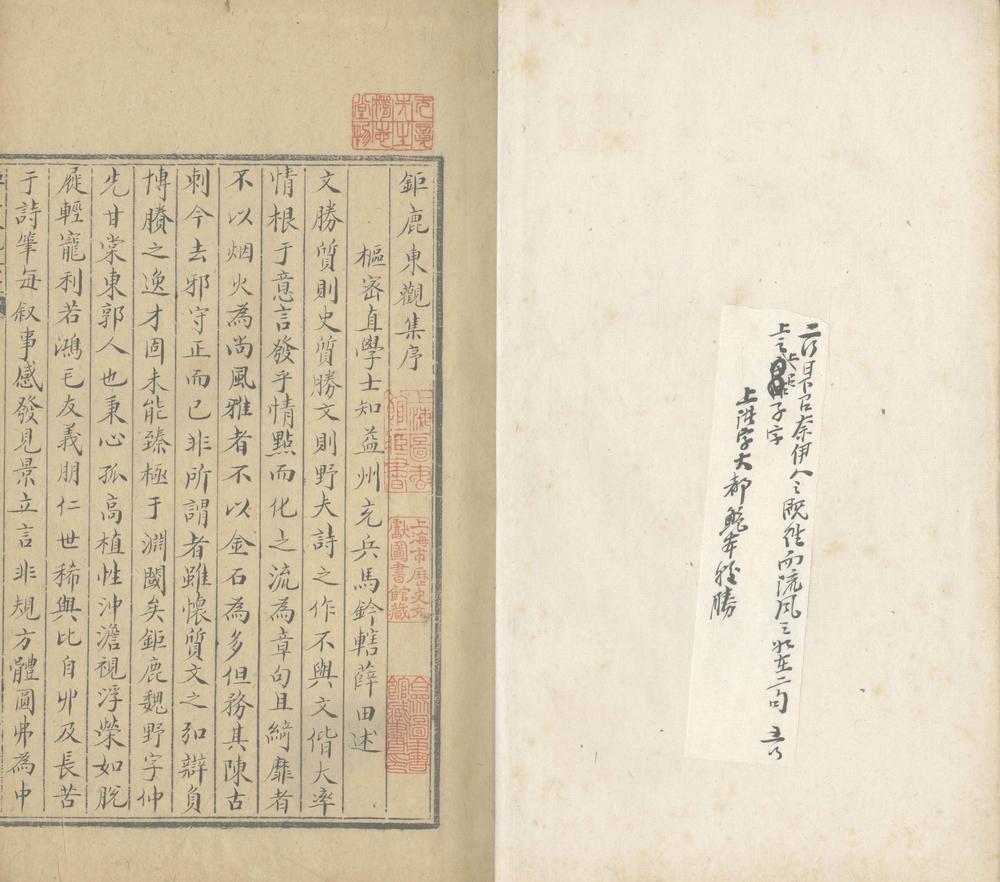 二行日下宦奈伊人之既往而流風之必在二句 五行
上之
上字大都鮑本稍勝
鉅鹿東觀集序
樞密直學士知益州充兵馬鈐轄薛田述
文勝質則史質勝文則野夫詩之作不與文偕大率
情根于意言發乎情點而化之流為章句且綺靡者
不以烟火為尚風雅者不以金石為多但務其陳古
刺今去邪守正而已非所謂者雖懷質文之弘辯負
博贍之逸才固未能臻極于淵閫矣鉅鹿魏野字仲
先甘棠東郭人也秉心孤高植性沖澹視浮榮如脫
屣輕寵利若鴻毛友義朋仁世稀與比自丱及長苦
于詩筆每叙事感發見景立言非規方體圓弗為中
上海圖書館藏書
上海市歷史文獻圖書館藏
合眾圖書館藏書印